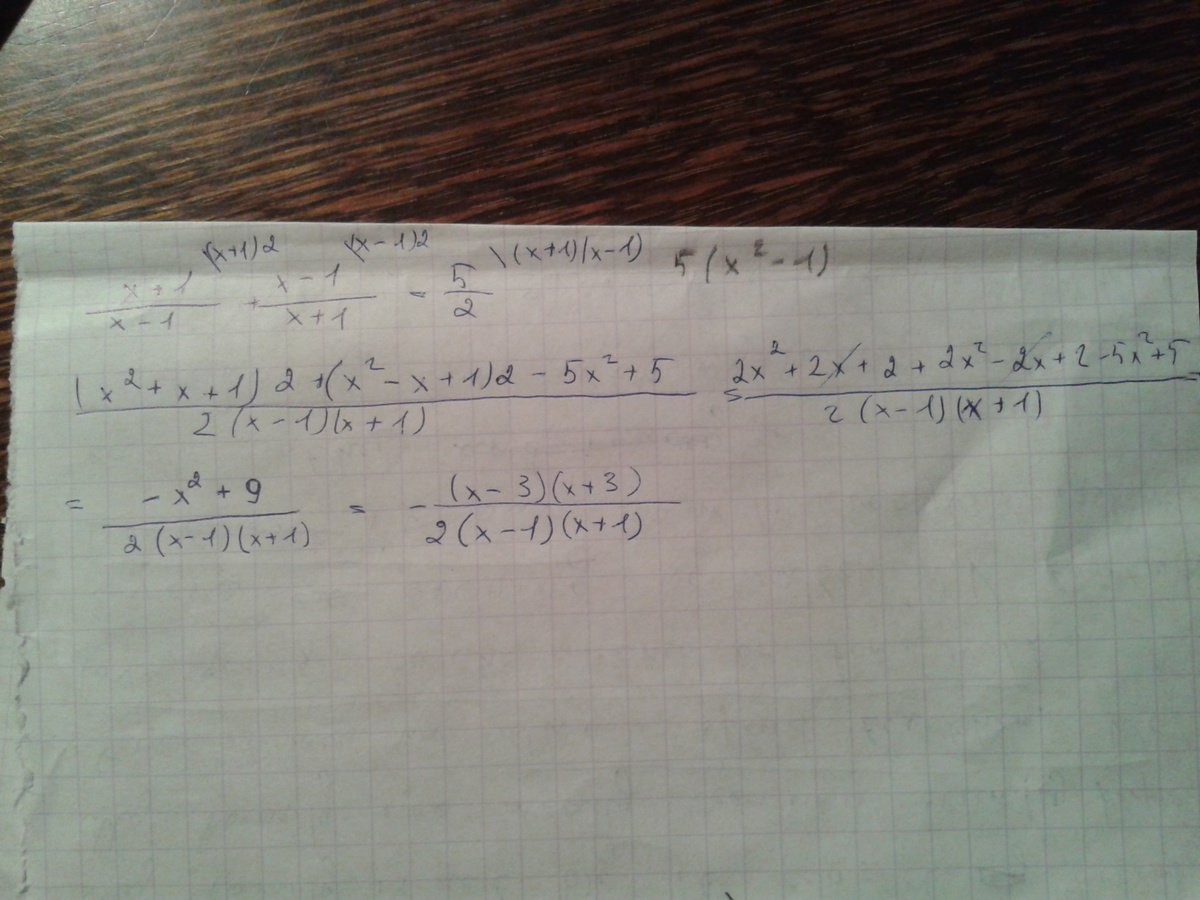 (x+1)/(x-1) \(x+1)2 + (x-1)/(x+1) \(x-1)2 = 5/2 \(x+1)(x-1) 5(x²-1)
((x²+x+1)2+(x²-x+1)2-5x²+5)/(2(x-1)(x+1)) = (2x²+2x+2+2x²-2x+2-5x²+5)/(2(x-1)(x+1)) =
= (-x²+9)/(2(x-1)(x+1)) = -((x-3)(x+3))/(2(x-1)(x+1))